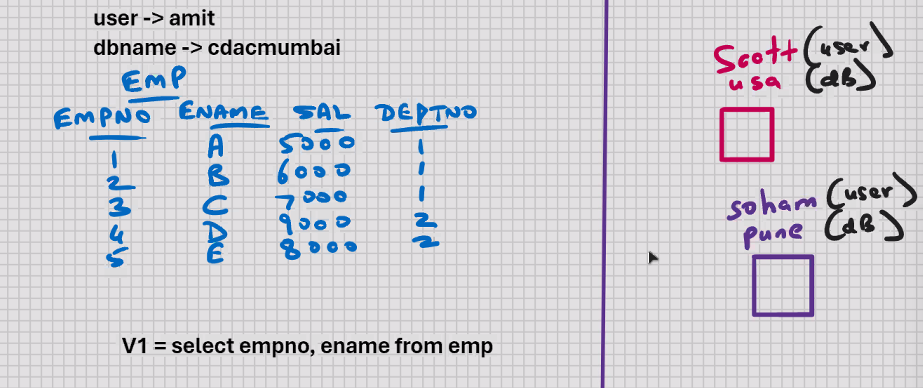 user -> amit
dbname -> cdacmumbai
EMP
EMPNO ENAME SAL DEPTNO
1 A 5000 1
2 B 6000 1
3 C 7000 1
4 D 9000 2
5 E 8000 2
V1 = select empno, ename from emp
Scott (user)
usa (dB)
soham (user)
pune (dB)